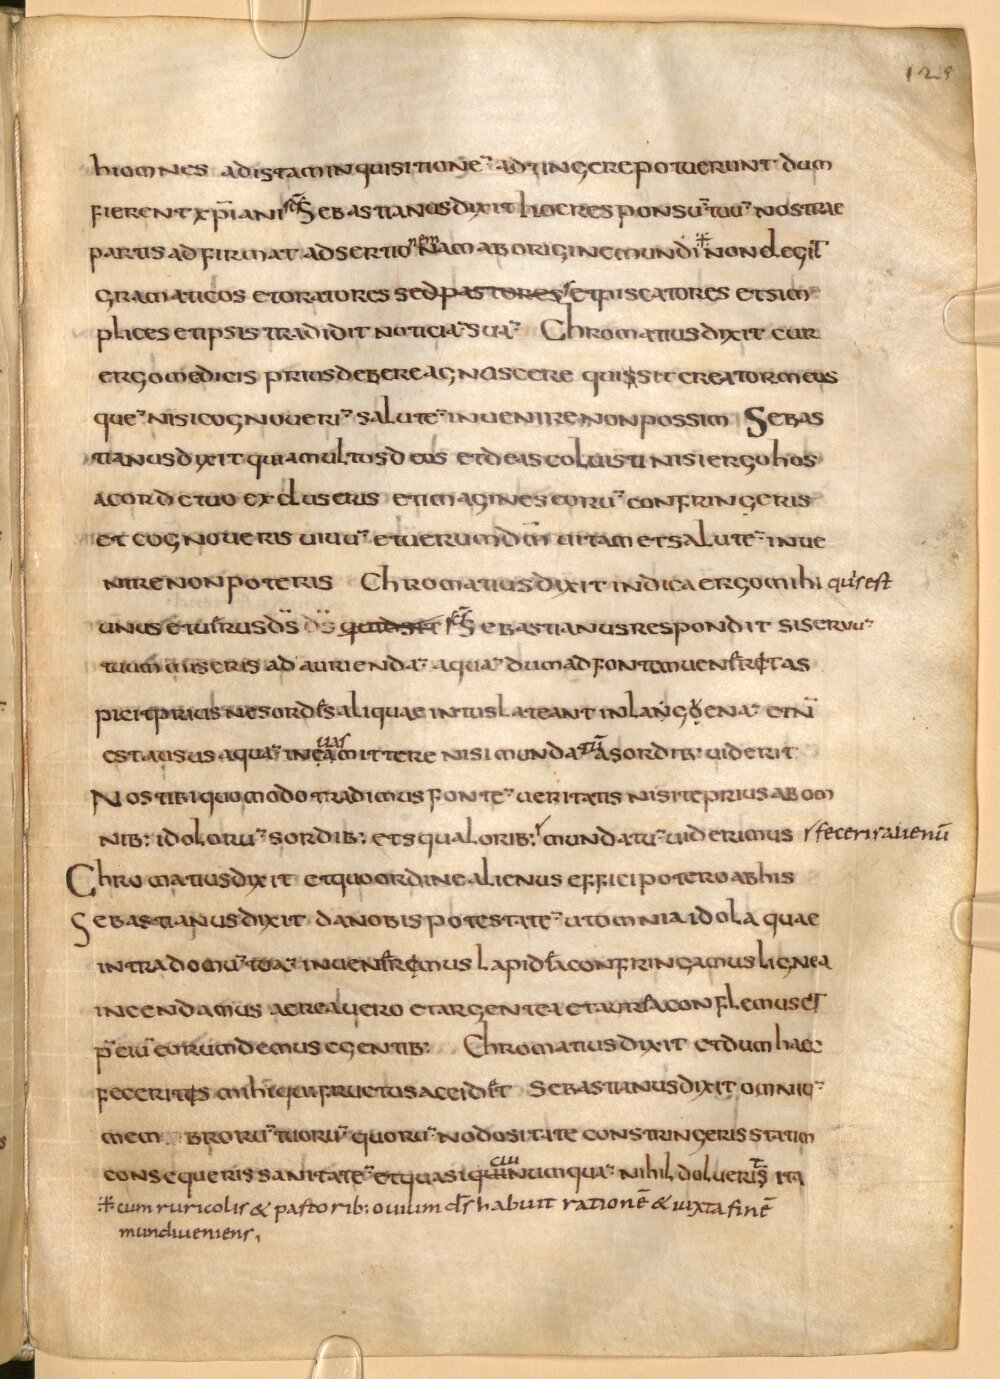 125
hi omnes ad istam inquisitionē adtingere potuerunt dum
fierent xp̄iani sc̄s Sebastianus dixit hoc responsū tuū nostrae
partis adfirmat adsertionem Nam ab origine mundi ⁜ non elegit
gramaticos et oratores sed pastores et piscatores et sim
plices et ipsis tradidit noticiā suā Chromatius dixit cur
ergo me dicis prius debere agnoscere quis sit creator meus
quē nisi cognouerī salutē inuenire non possim Sebas
tianus dixit quia multos deos et deas coluisti nisi ergo hos
a corde tuo excluseris et imagines eorū confringeris
et cognoueris uiuū et uerum dm̄ uitam et salutē inue
nire non poteris Chromatius dixit indica ergo mihi quis est
unus et uerus ds̄ ds̄ quid sit sc̄s Sebastianus respondit si seruū
tuum miseris ad auriendā aquā dum ad fontem uenerit as
picit prius ne sordes aliquae intus lateant in langoenā et n̄
est ausus aquā in eā uas mittere nisi mundatū a sordib: uiderit
Nos tibi quomodo tradimus fontē ueritatis nisi te prius ab om
nib: idolorū sordib: et squalorib: mundatū uiderimus feceris alienū
Chromatius dixit et quo ordine alienus effici potero ab his
Sebastianus dixit da nobis potestatē ut omnia idola quae
intra domū tuā inuenerimus lapidea confringamus lignea
incendamus aerea uero et argentea et aurea conflemus et
p̄ciū eorum demus egentib: Chromatius dixit et dum haec
feceritis mihi qui fructus accidet Sebastianus dixit omniū
mem brorū tuorū quorū nodositate constringeris statim
consequeris sanitatē et quasi qui cui numquā nihil dolueris ita
⁜ cum ruricolis & pastorib: ouium ds̄ habuit rationē & iuxta finē
mundi ueniens,